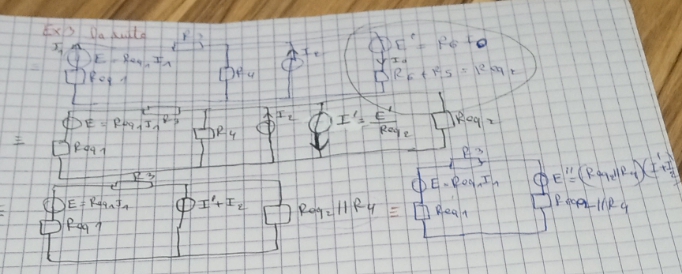 Ex3
R3
I1
E = Req1 I1
Req1
R4
I2
E' =
R6 + R5 = Req2
≡
E = Req1 I1
R3
Req1
R4
I2
I' = E'/Req2
Req2
R3
E = Req1 I1
Req1
I' + I2
Req2 || R4
≡
R3
E = Req1 I1
Req1
E'' = (Req2 || R4)
|| R4